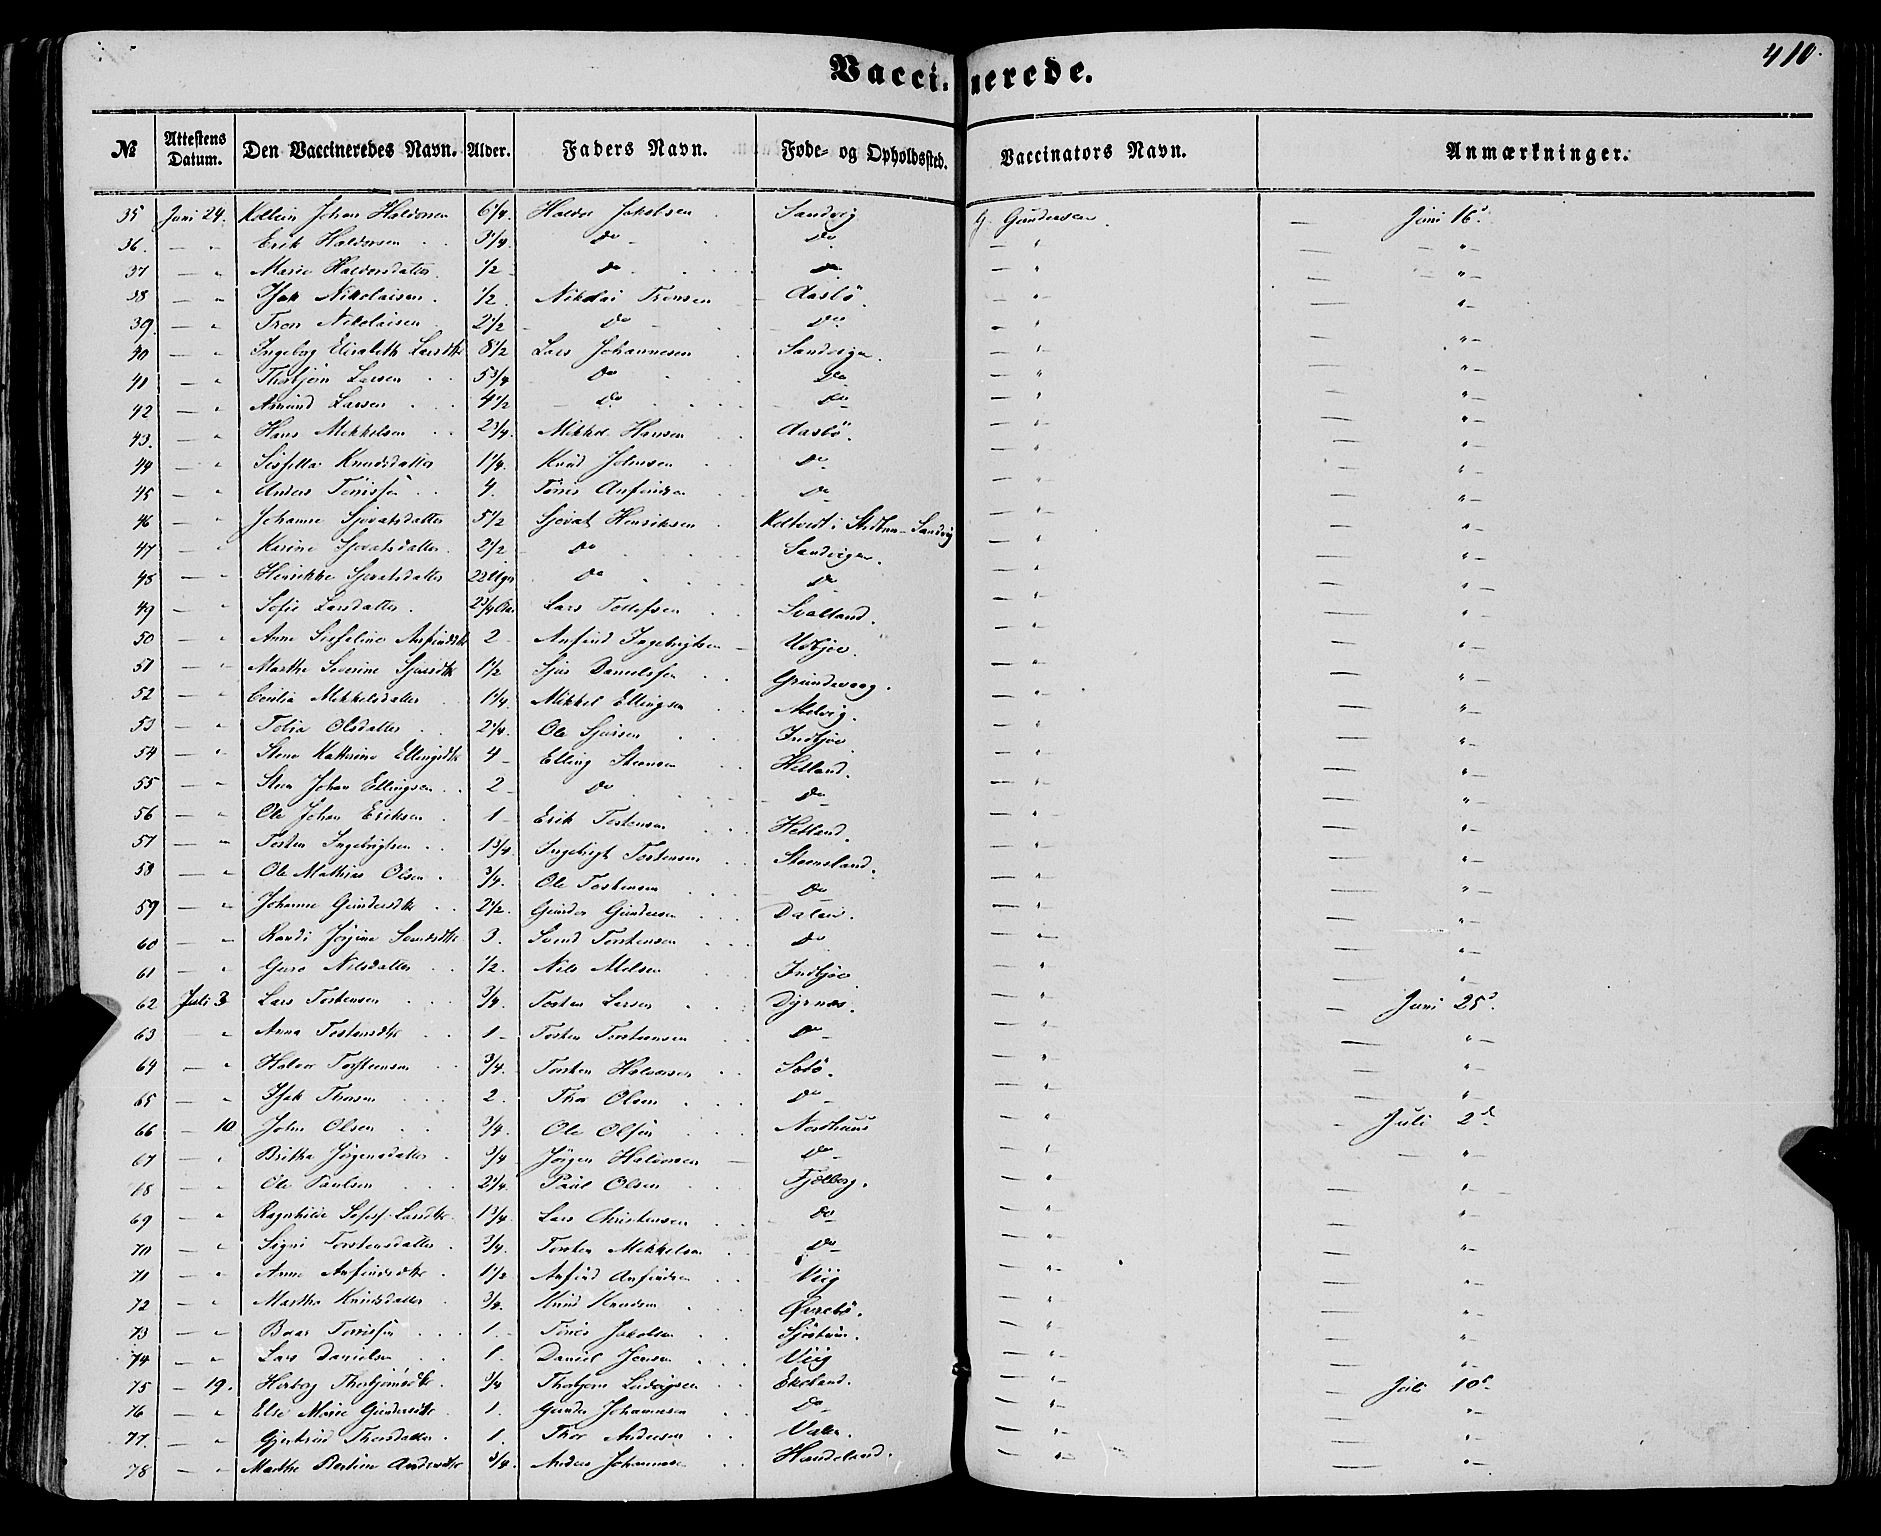 410.
Vaccinerede.
№ Attestens Datum. Den Vaccineredes Navn. Alder. Faders Navn. Føde- og Opholdssted. Vaccinators Navn. Anmærkninger.
35 Juni 24. Johan Haldorsen 6 1/4. Haldor Jakobsen Sandvig G. Gundersen — Juni 16d
36. — " Erik Haldorsen 3 1/4. Do Do — " — " —
37 — " Marie Haldorsdatter 1/2 — Do Do — " — " —
38 — " Isak Nikolaisen 1/2. Nikolai Tronsen Aasbö. — " — " —
39. — " Tron Nikolaisen 2 1/2 Do Do — " — " —
40 — " Ingeborg Elisabeth Larsdtr 8 1/2 Lars Johannesen Sandvigen. — " — " —
41 — " Thorbjörn Larsen 5 3/4 Do Do — " — " —
42 — " Amund Larsen 4 1/2 Do Do — " — " —
43. — " Hans Mikkelsen 2 3/4. Mikkel Hansen Aasbö. — " — " —
44 — " Knudsdatter 1 1/4. Knud Johnsen Do — " — " —
45 — " Anders 4. Anfindsen Do — " — " —
46 — " Johanne Sjovatsdatter 5 1/2 Sjovat Henriksen i Sandvig — " — " —
47 — " Karine Sjovatsdatter. 2 1/2 Do Sandvigen — " — " —
48 — " Henrikke Sjovatsdatter 22 Do Do — " — " —
49 — " Sofie Larsdatter. 2 3/4 Lars Tollefsen Svalland. — " — " —
50 — " Anne Anfindsdtr 2 — Anfind Ingebrigtsen Utbjoe. — " — " —
51 — " Marthe Severine 1 1/2 Sjur Danielsen Grindevaag. — " — " —
52 — " Cecilia Mikkelsdatter 1 1/4. Mikkel Ellingsen Melvig. — " — " —
53 — " Olsdatter 2 1/4. Ole Sjursen Indbjoe — " — " —
54 — " Stene Kathrine Ellingsdtr 4 — Elling Steensen Hetland. — " — " —
55 — " Steen Johan Ellingsen 2 — Do Do — " — " —
56 — " Ole Johan Eriksen 1 — Erik Tostensen Hetland. — " — " —
57 — " Tosten Ingebrigtsen 1 3/4. Ingebrigt Tostensen Steensland. — " — " —
58 — " Ole Mathias Olsen 3/4. Ole Tostensen Do — " — " —
59 — " Johanne Gundersdtr 2 1/2. Gunder Gundersen Dalen. — " — " —
60 — " Randi Jörgine Svendsdtr 3. Svend Torstensen Do — " — " —
61 — " Guro Nilsdatter 1/2. Nils Indbjoe — " — " —
62 Juli 3 Lars Tostensen 3/4. Tosten Larsen Dyrnæs. — " — Juni 25d
63 — " Anna Tostensdtr 1 — Tosten Torstensen Do — " — " —
64 — " Halvor Torsteensen 3/4. Torsten Halvorsen — " — " —
65 — " Isak Thorsen 2. Thor Olsen Do — " — " —
66 — 10. John Olsen 3/4. Ole Olsen Nordhuus — " — Juli 2d
67 — " Britha Jörgensdatter 3/4 Jörgen Halvorsen Do — " — " —
18 — " Ole Paulsen 2 1/4. Paul Olsen Fjelberg. — " — " —
69 — " Ragnhilde Larsdtr. 1 3/4. Lars Christensen Do — " — " —
70 — " Signi Torstensdatter 3/4. Torsten Mikkelsen Do — " — " —
71 — " Anne Anfindsdtr 1 1/2 Anfind Anfindsen Viig — " — " —
72 — " Martha Knudsdatter 3/4. Knud Knudsen Øvrebö. — " — " —
73 — " Baar 1. — Jakobsen — " — " —
74 — " Lars Danielsen 1. Daniel Jensen Viig — " — " —
75 — 19. Herborg Thorbjörnsdtr. 3/4 Thorbjörn Ludvigsen Ekeland. — " — Juli 10d
76 — " Else Marie Gundersdtr 1. Gunder Johannesen Do — " — " —
77. — " Gjertrud Thorsdatter 1. Thor Andersen Valen. — " — " —
78 — " Marthe Andersdtr 3/4. Anders Johannesen Handeland. — " — " —